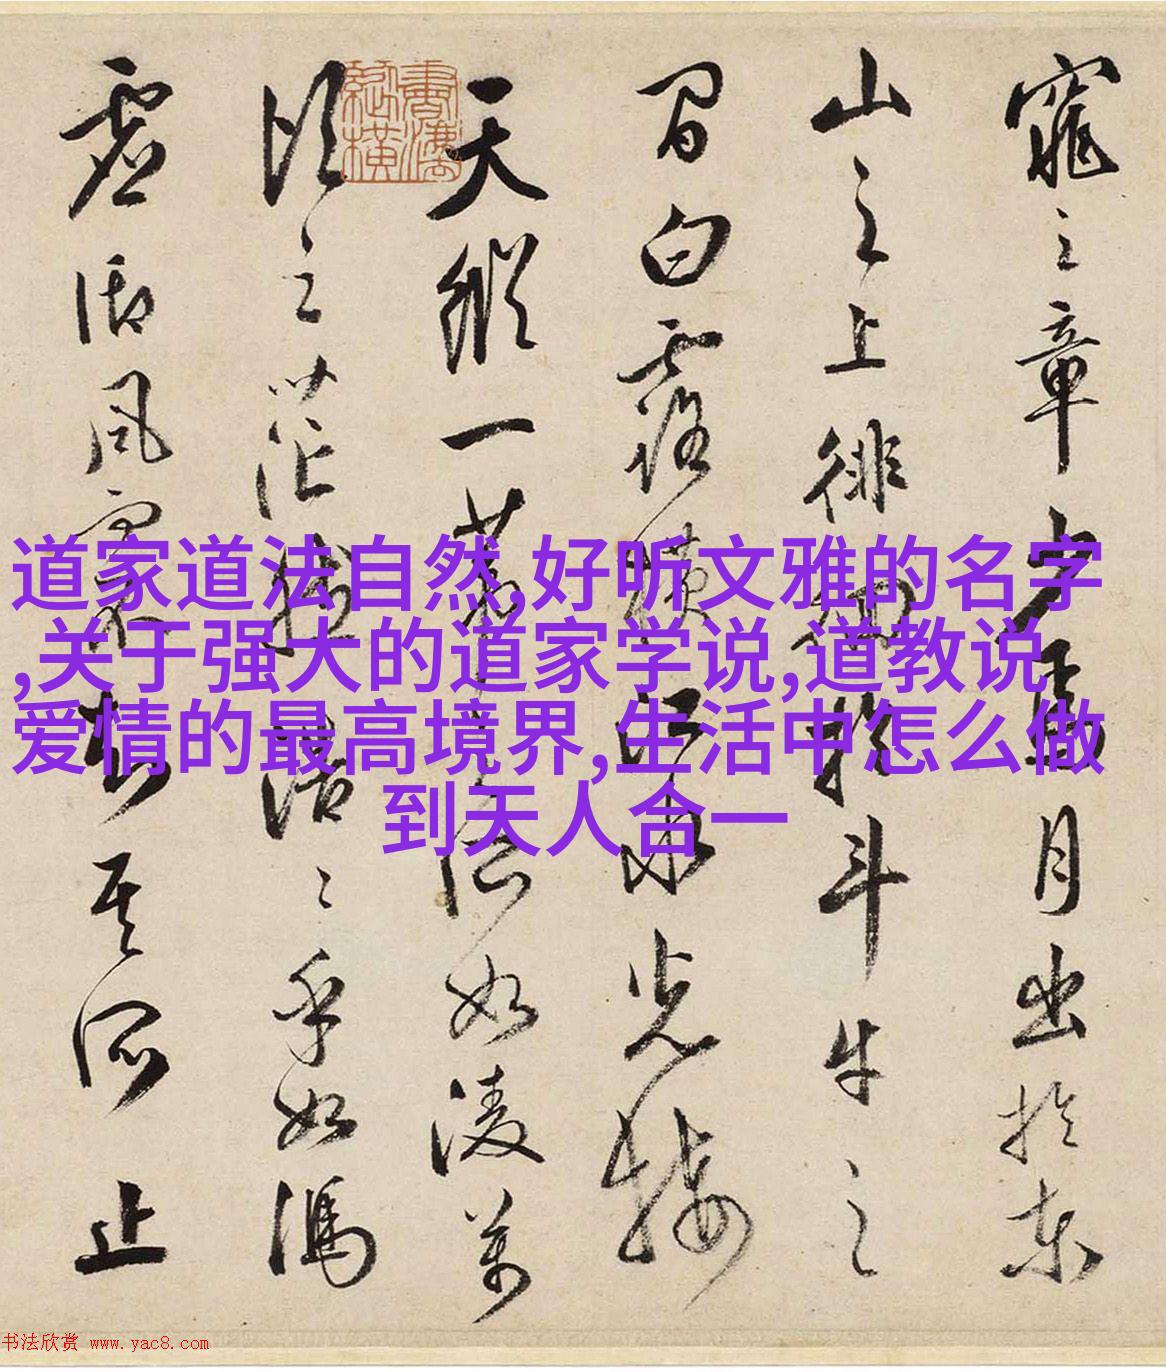 道家道法自然,好听文雅的名字
,关于强大的道家学说,道教说
爱情的最高境界,生活中怎么做
到天人合一
窕之章少焉月出於東
山之上徘徊於斗牛之
間白露橫江水光接
天縱一葦之所如淩萬
頃之茫然浩〻乎如馮
虛御風而不知其所止
书法欣赏 www.yac8.com